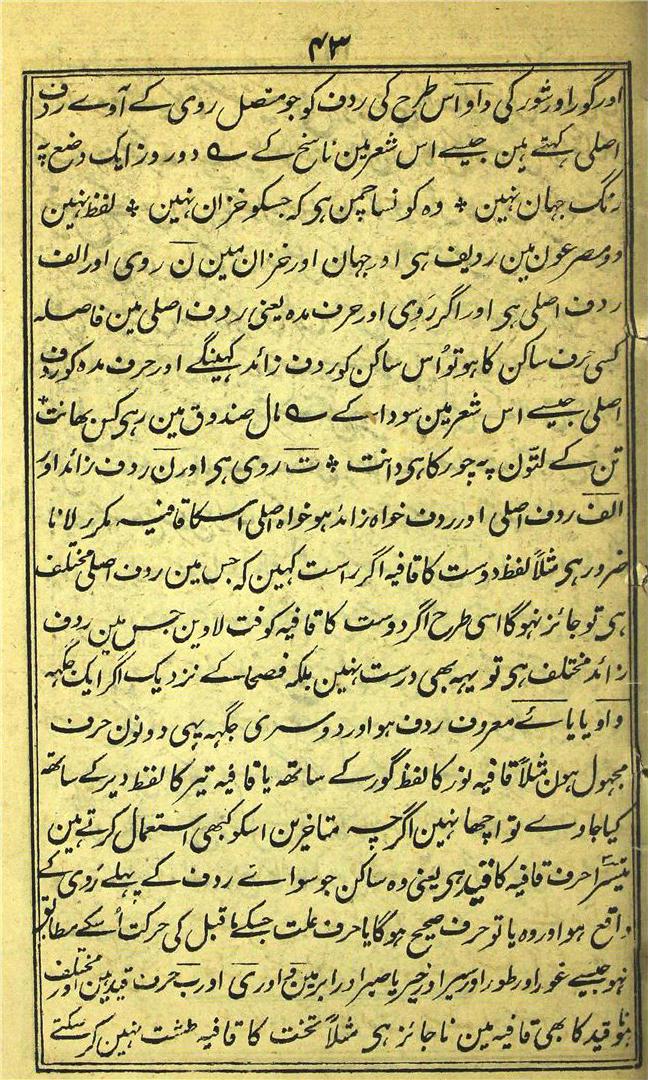 ۴۳
اور گور اور شور کی واو اس طرح کی ردف کو جو متصل روی کے آوے ردف
اصلی کہتے ہین جیسے اس شعر مین ناسخ کے ؎ دو روز ایک وضع پہ
رنگ جہان نہین * وہ کونسا چمن ہی کہ جسکو خزان نہین * لفظ نہین
دو مصرعون مین ردیف ہی اور جہان اور خزان مین ن روی اور الف
ردف اصلی ہی اور اگر روی اور حرف مدہ یعنی ردف اصلی مین فاصلہ
کسی حرف ساکن کا ہو تو اُس ساکن کو ردف زائد کہینگے اور حرف مدہ کو ردف
اصلی جیسے اس شعر مین سودا کے ؎ مال صندوق مین رہی کس بھانت *
تن کے لتّون پہ چور کا ہی دانت * ت روی ہی اور ن ردف زائد اور
الف ردف اصلی اور ردف خواہ زائد ہو خواہ اصلی اسکا قافیہ مکرر لانا
ضرور ہی مثلاً لفظ دوست کا قافیہ اگر راست کہین کہ جس مین ردف اصلی مختلف
ہی تو جائز نہوگا اسی طرح اگر دوست کا قافیہ کوفت لاوین جس مین ردف
زائد مختلف ہی تو یہہ بھی درست نہین بلکہ فصحا کے نزدیک اگر ایک جگہہ
واو یا یائے معروف ردف ہو اور دوسری جگہہ یہی دونون حرف
مجہول ہون مثلاً قافیہ نور کا لفظ گور کے ساتھ یا قافیہ تیر کا لفظ دیر کے ساتھ
کیا جاوے تو اچھا نہین اگرچہ متاخرین اسکو کبھی استعمال کرتے ہین
تیسرا حرف قافیہ کا قید ہی یعنی وہ ساکن جو سوائے ردف کے پہلے روی کے
واقع ہو اور وہ یا تو حرف صحیح ہوگا یا حرف علت جسکے ماقبل کی حرکت اُسکے مطابق
نہو جیسے غور اور طور اور سیر اور خیر یا صبر اور ابر مین و اور ی اور ب حرف قید ہین اور مختلف
ہونا قید کا بھی قافیہ مین ناجائز ہی مثلاً تخت کا قافیہ طشت نہین کر سکتے